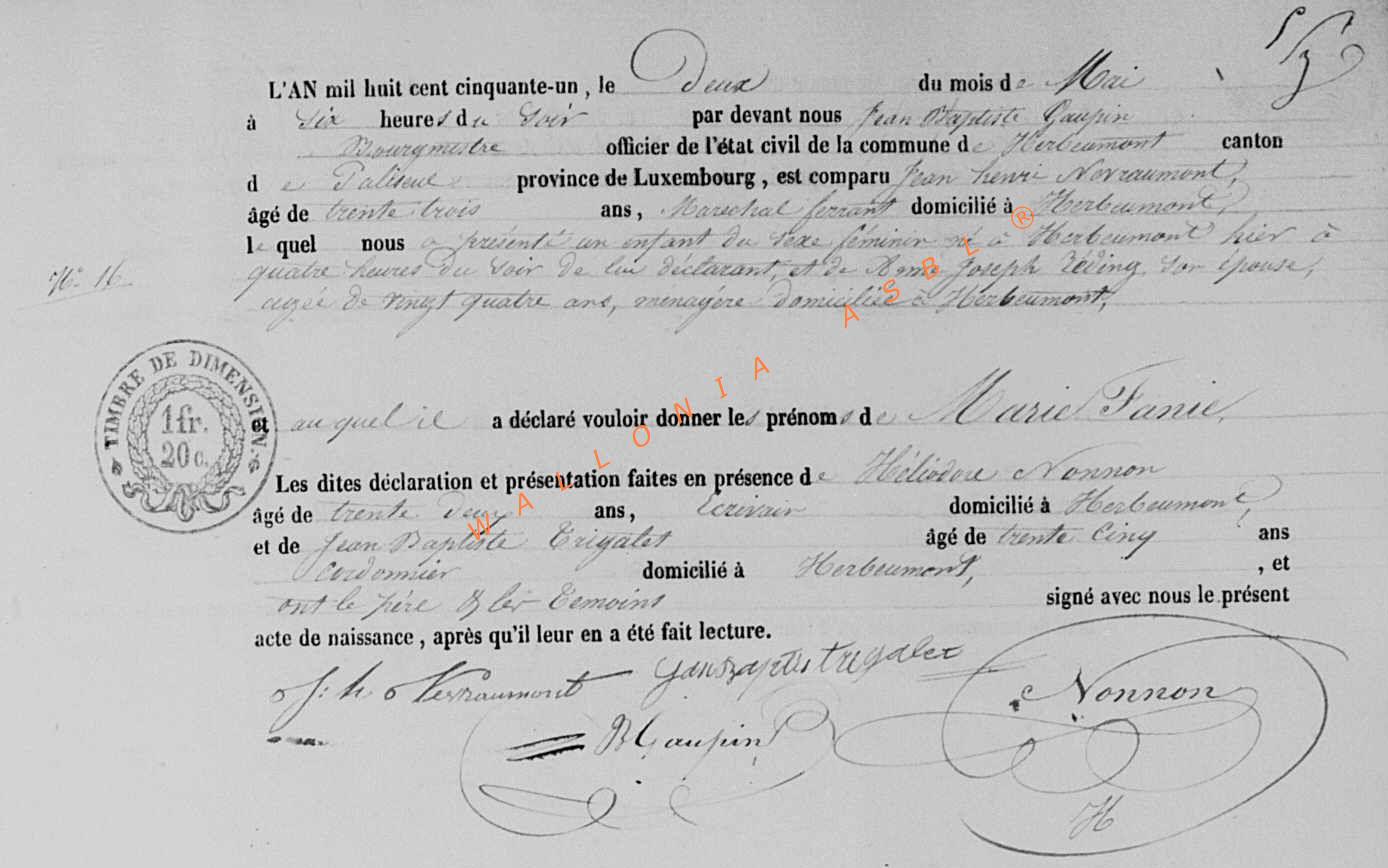 L'AN mil huit cent cinquante-un, le Deux du mois de Mai
à Six heures du Soir par devant nous Jean Baptiste Gaupin
Bourgmestre officier de l'état civil de la commune de Herbeumont canton
de Paliseul province de Luxembourg, est comparu Jean henri Nevraumont,
âgé de trente trois ans, Marechal ferrant domicilié à Herbeumont,
lequel nous a présenté un enfant du sexe féminin né à Herbeumont hier à
N.° 16
quatre heures du Soir de lui déclarant, et de Anne Joseph son épouse,
agée de vingt quatre ans, ménagère domiciliée à Herbeumont,
TIMBRE DE DIMENSION.
1 fr.
20 c.
et auquel il a déclaré vouloir donner les prénoms de Marie Fanie,
Les dites déclaration et présentation faites en présence de Héliodore Nonnon
âgé de trente deux ans, Ecrivain domicilié à Herbeumont,
et de Jean Baptiste Trigalet âgé de trente Cinq ans
Cordonnier domicilié à Herbeumont, , et
ont le père & les Temoins signé avec nous le présent
acte de naissance, après qu'il leur en a été fait lecture.
J: h Nevraumont Trigalet Nonnon
Gaupin
H
WALLONIA ASBL ®